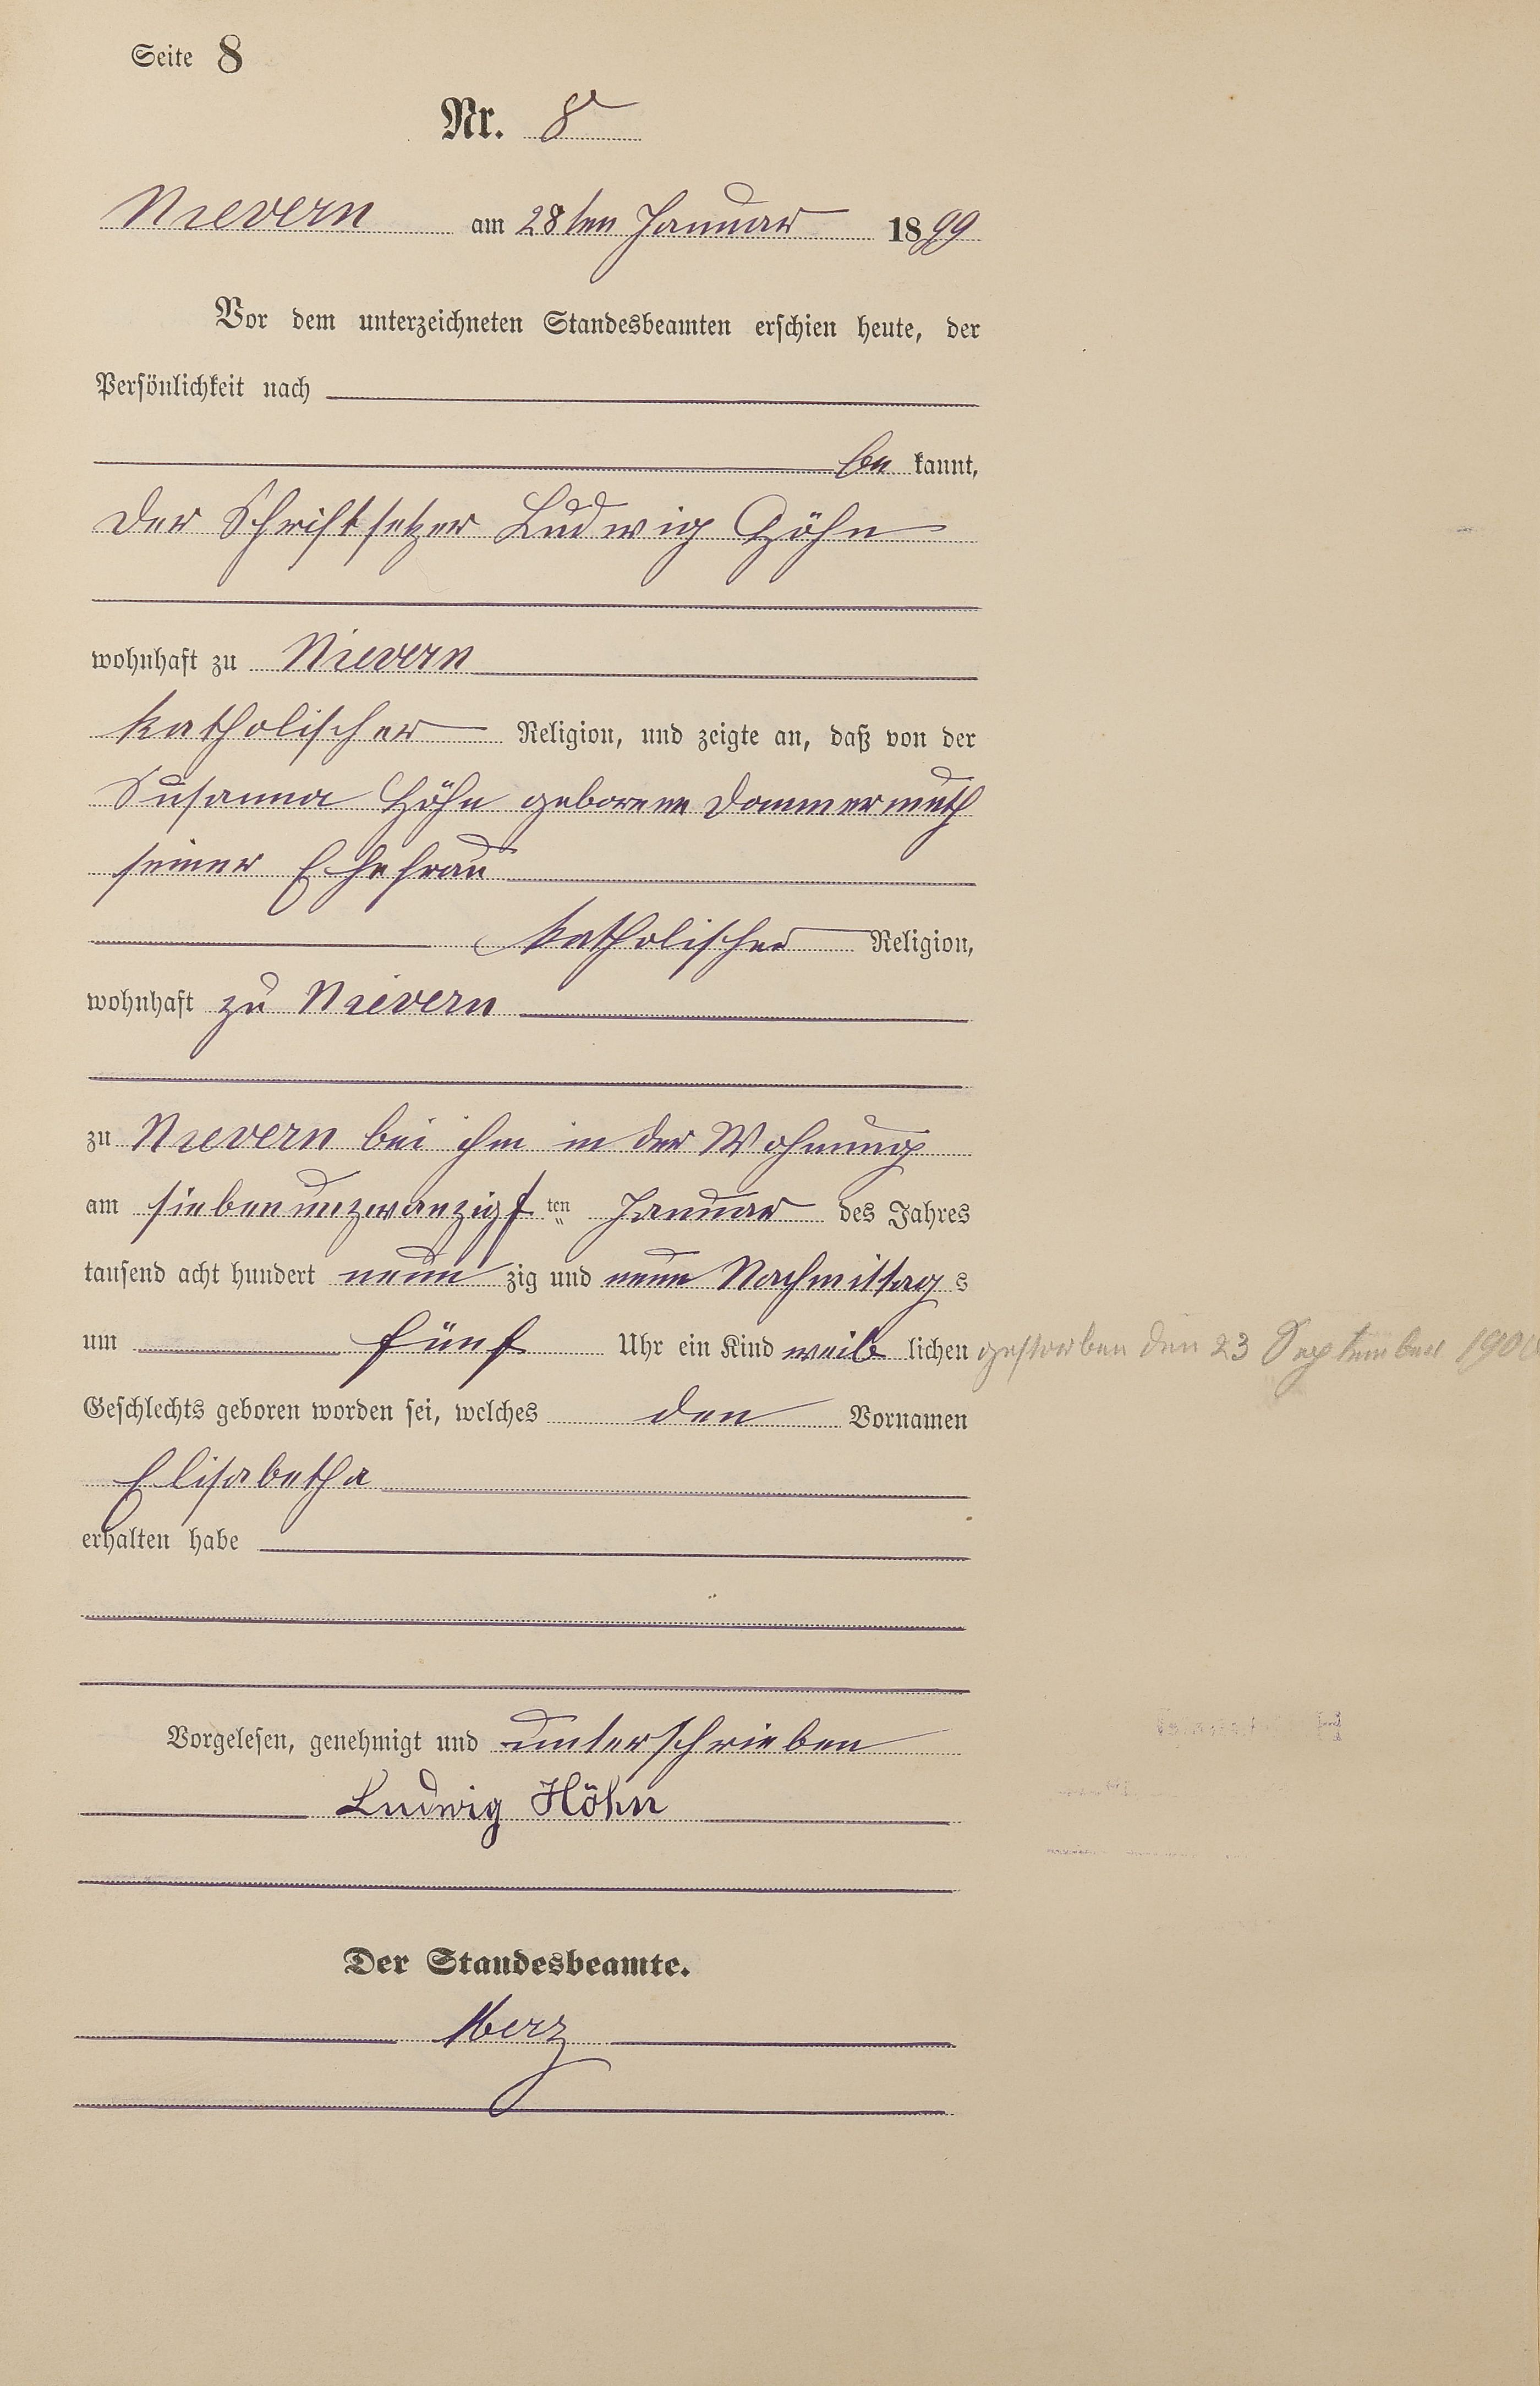 Seite 8
Nr. 8
Nievern am 28ten Januar 1899
Vor dem unterzeichneten Standesbeamten erschien heute, der
Persönlichkeit nach
be kannt,
der Schriftsetzer Ludwig Höhn
wohnhaft zu Nievern
katholischer Religion, und zeigte an, daß von der
Susanna Höhn geborene Dommermuth
seiner Ehefrau
katholischer Religion,
wohnhaft zu Nievern
zu Nievern bei ihm in der Wohnung
am siebenunzwanzigsten Januar des Jahres
tausend acht hundert neun zig und neun Nachmittags
um fünf Uhr ein Kind weib lichen gestorben den 23 September 1900
Geschlechts geboren worden sei, welches den Vornamen
Elisabetha
erhalten habe
Vorgelesen, genehmigt und unterschrieben
Ludwig Höhn
Der Standesbeamte.
Merz